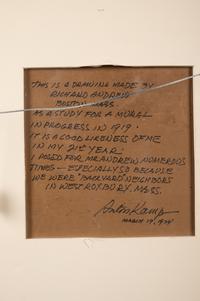 THIS IS A DRAWING MADE BY
RICHARD ANDREW
BOSTON, MASS.
AS A STUDY FOR A MURAL
IN PROGRESS IN 1919.
IT IS A GOOD LIKENESS OF ME
IN MY 21ST YEAR.
I POSED FOR MR. ANDREW NUMEROUS
TIMES — ESPECIALLY SO BECAUSE
WE WERE "BACKYARD" NEIGHBORS
IN WEST ROXBURY, MASS.
Kamp
MARCH 19, 1974